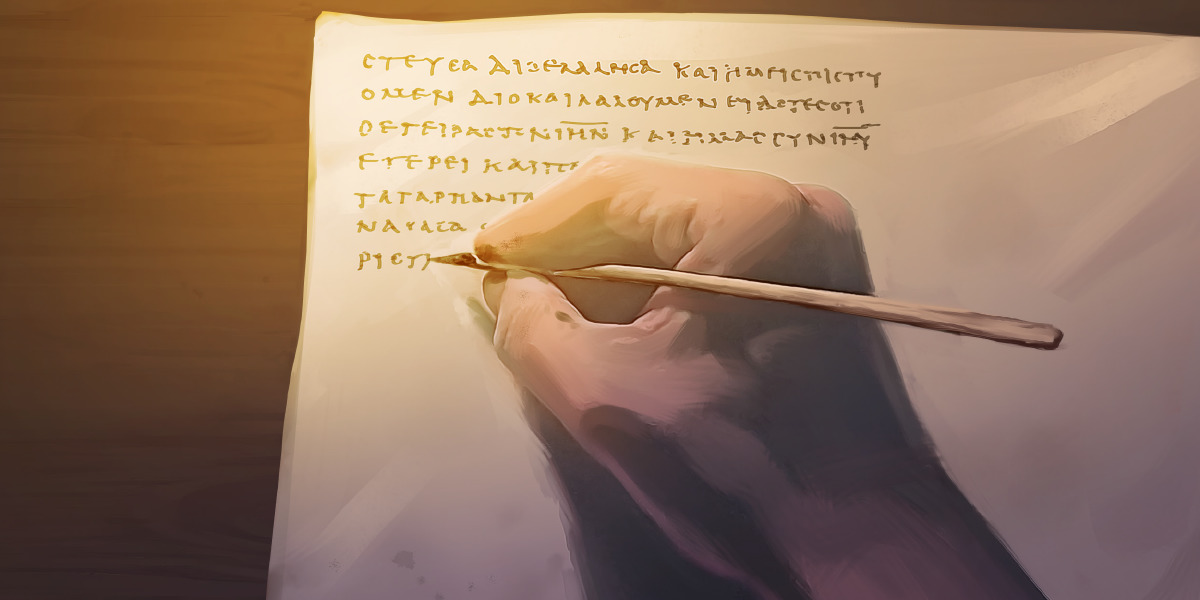 ϹΤΕΥϹΑ ΔΙΟΕΛΑΛΗϹΑ ΚΑΙΗΜΕΙϹΠΙϹΤΕΥ
ΟΜΕΝ ΔΙΟΚΑΙΛΑΛΟΥΜΕΝ ΕΙΔΟΤΕϹΟΤΙ
ΟΕΓΕΙΡΑϹΤΟΝΙΗΝ ΚΑΙΗΜΑϹϹΥΝΙΗΥ
ΕΓΕΡΕΙ ΚΑΙΠ
ΤΑΓΑΡΠΑΝΤΑ